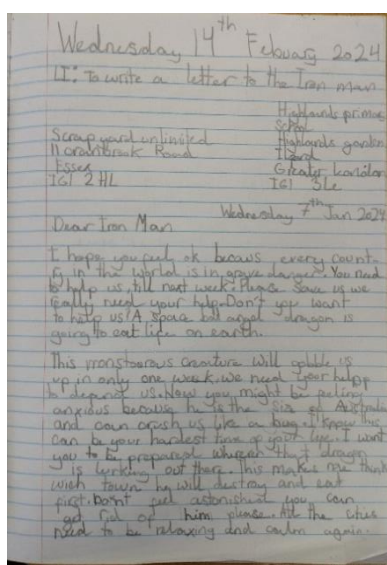 Wednesday 14th Febuary 2024
LI: To write a letter to the Iron man
Highlands primary
School
Scrap yard unlimited
Highlands garden
11 cranbrook Road
Ilford
Essex
Greater London
IG1 2HL
IG1 3Le
Wednesday 7th Jan 2024
Dear Iron Man
I hope you feel ok becaus every count-
ry in the world is in grave danger. You need
to help us, till next week. Please save us we
really need your help. Don't you want
to help us! A space bat angel dragon is
going to eat life on earth.
This monstoerous creature will gobble us
up in only one week. We need your helpp
to us. Now you might be feeling
anxious because he is the size of Australia
and can crush us like a bug. I know this
can be your hardest time of your life. I want
you to be prepared that dragon
is lurking out there. This makes me think
wich town he will destroy and eat
first. Don't feel astonished you can
get rid of him please. All the cities
need to be relaxing and calm again.